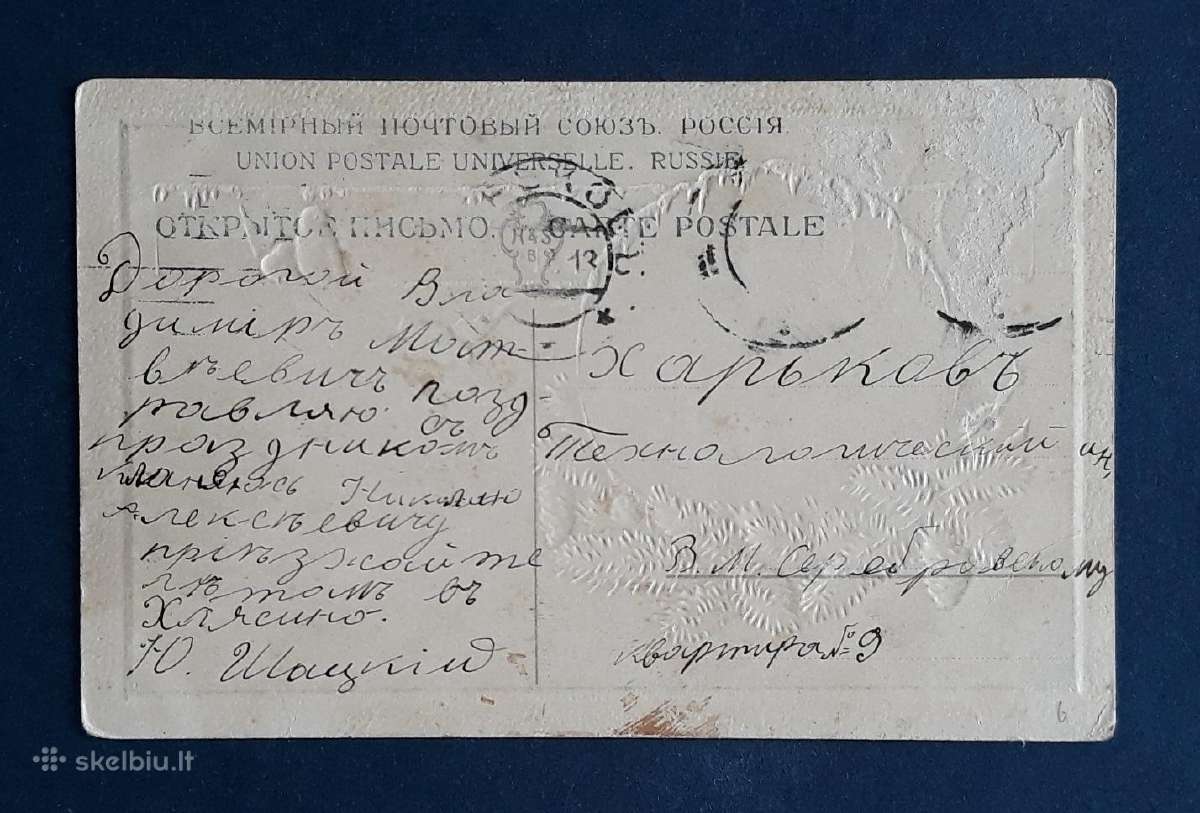 ВСЕМІРНЫЙ ПОЧТОВЫЙ СОЮЗЪ. РОССІЯ.
UNION POSTALE UNIVERSELLE. RUSSIE
ОТКРЫТОЕ ПИСЬМО. CARTE POSTALE
Дорогой Вла
димiръ Мат-
вѣевичъ позд-
равляю съ
праздникомъ
кланяюсь Николаю
Алексѣевичу
приѣзжайте
лѣтомъ въ
Хлясино.
Ю. Шацкій
Харьковъ
Технологический ин,
В. М. Серебровскому
Квартира № 9
H&S
B
12
6
skelbiu.lt